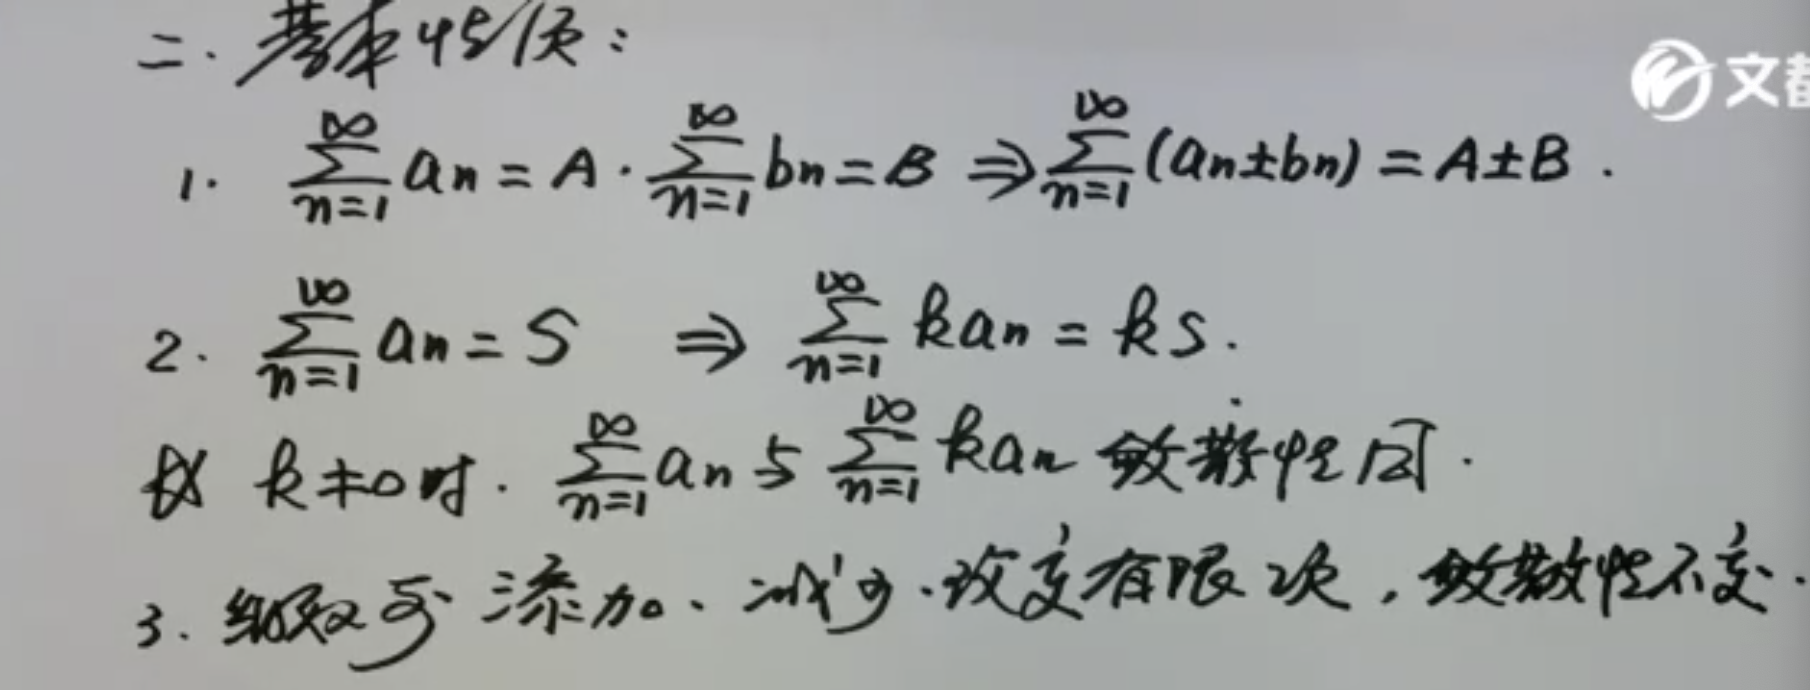 二. 基本性质:
文都
1. ∑_{n=1}^{∞} an = A. ∑_{n=1}^{∞} bn = B ⇒ ∑_{n=1}^{∞} (an±bn) = A±B.
2. ∑_{n=1}^{∞} an = S ⇒ ∑_{n=1}^{∞} kan = kS.
故 k≠0时. ∑_{n=1}^{∞} an 与 ∑_{n=1}^{∞} kan 敛散性同.
3. 级数前 添加、减少、改变有限项, 敛散性不变.